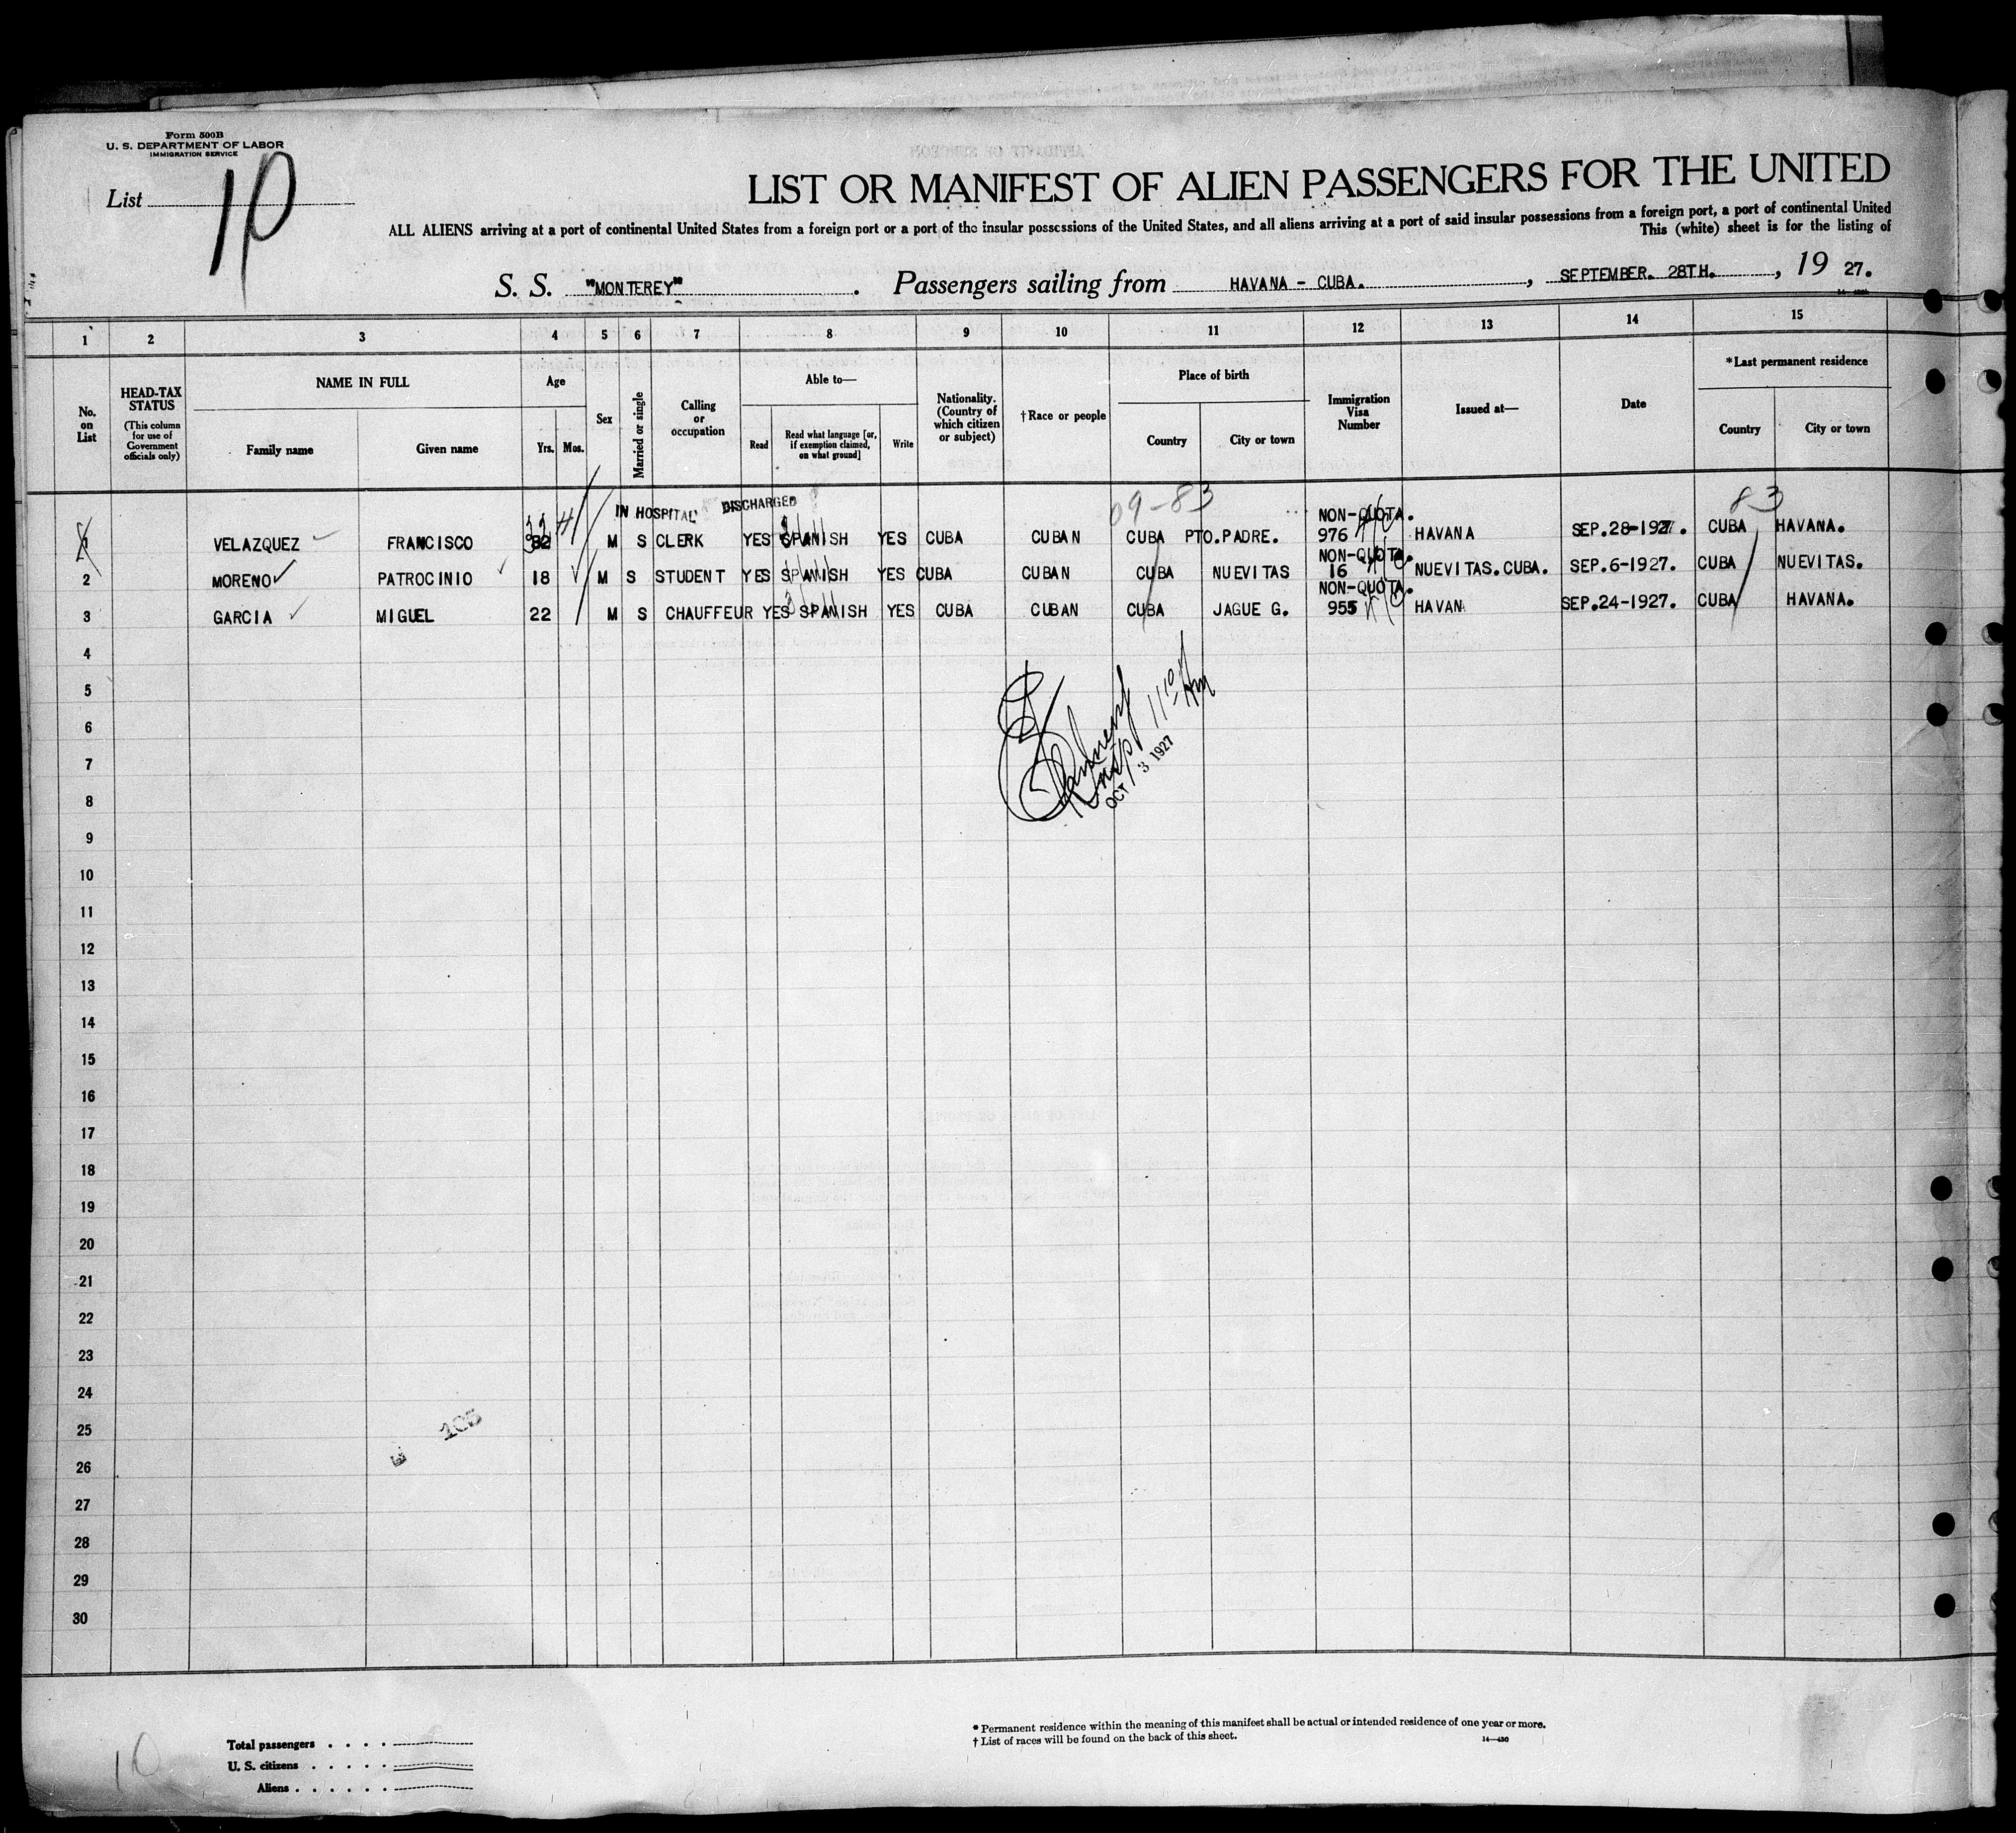 Form 500B
U. S. DEPARTMENT OF LABOR
IMMIGRATION SERVICE
List 10
LIST OR MANIFEST OF ALIEN PASSENGERS FOR THE UNITED
ALL ALIENS arriving at a port of continental United States from a foreign port or a port of the insular possessions of the United States, and all aliens arriving at a port of said insular possessions from a foreign port, a port of continental United
This (white) sheet is for the listing of
S. S. "MONTEREY". Passengers sailing from HAVANA - CUBA., SEPTEMBER. 28TH., 19 27.
1 2 3 4 5 6 7 8 9 10 11 12 13 14 15
No. on List
HEAD-TAX STATUS (This column for use of Government officials only)
NAME IN FULL
Family name
Given name
Age
Yrs. Mos.
Sex
Married or single
Calling or occupation
Able to—
Read
Read what language [or, if exemption claimed, on what ground]
Write
Nationality. (Country of which citizen or subject)
†Race or people
Place of birth
Country
City or town
Immigration Visa Number
Issued at—
Date
*Last permanent residence
Country
City or town
IN HOSPITAL DISCHARGED 09-83 83
NON-QUOTA.
1 VELAZQUEZ FRANCISCO 32 M S CLERK YES SPANISH YES CUBA CUBAN CUBA PTO.PADRE. 976 HAVANA SEP.28-1927. CUBA HAVANA.
NON-QUOTA.
2 MORENO PATROCINIO 18 M S STUDENT YES SPANISH YES CUBA CUBAN CUBA NUEVITAS 16 NUEVITAS.CUBA. SEP.6-1927. CUBA NUEVITAS.
NON-QUOTA.
3 GARCIA MIGUEL 22 M S CHAUFFEUR YES SPANISH YES CUBA CUBAN CUBA JAGUE G. 955 HAVAN SEP.24-1927. CUBA HAVANA.
4
5
6
7
8
9
10
11
12
13
14
15
16
17
18
19
20
21
22
23
24
25
26
27
28
29
30
Insp 11 10 AM
OCT 3 1927
105
E
10
Total passengers
U. S. citizens
Aliens
* Permanent residence within the meaning of this manifest shall be actual or intended residence of one year or more.
† List of races will be found on the back of this sheet.
14—430